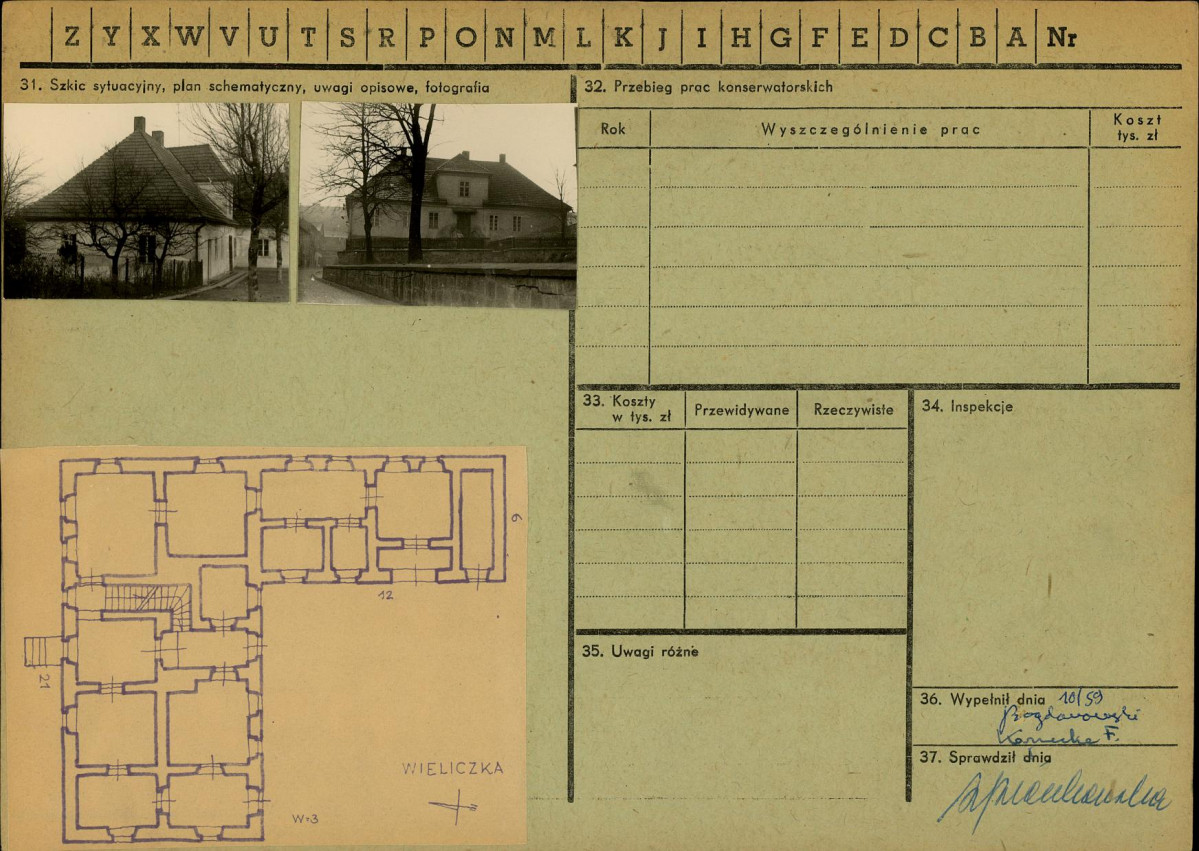 Z Y X W V U T S R P O N M L K J I H G F E D C B A Nr
31. Szkic sytuacyjny, plan schematyczny, uwagi opisowe, fotografia
32. Przebieg prac konserwatorskich
Rok
Wyszczególnienie prac
Koszt
tys. zł
33. Koszty
w tys. zł
Przewidywane
Rzeczywiste
34. Inspekcje
9
12
21
WIELICZKA
W=3
35. Uwagi różne
36. Wypełnił dnia 10/59
Bogdanowski
F.
37. Sprawdził dnia